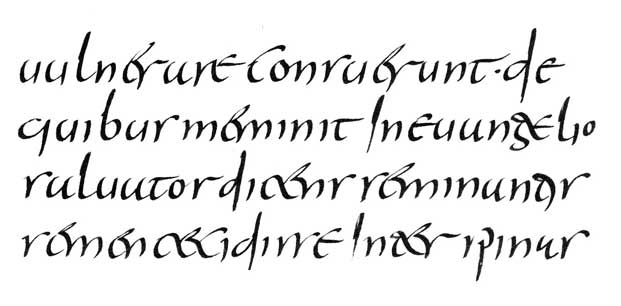 uulnerare consuerunt. de
quibus meminit In euangelio
saluator dicens seminantis
semen cecidisse Inter spinas